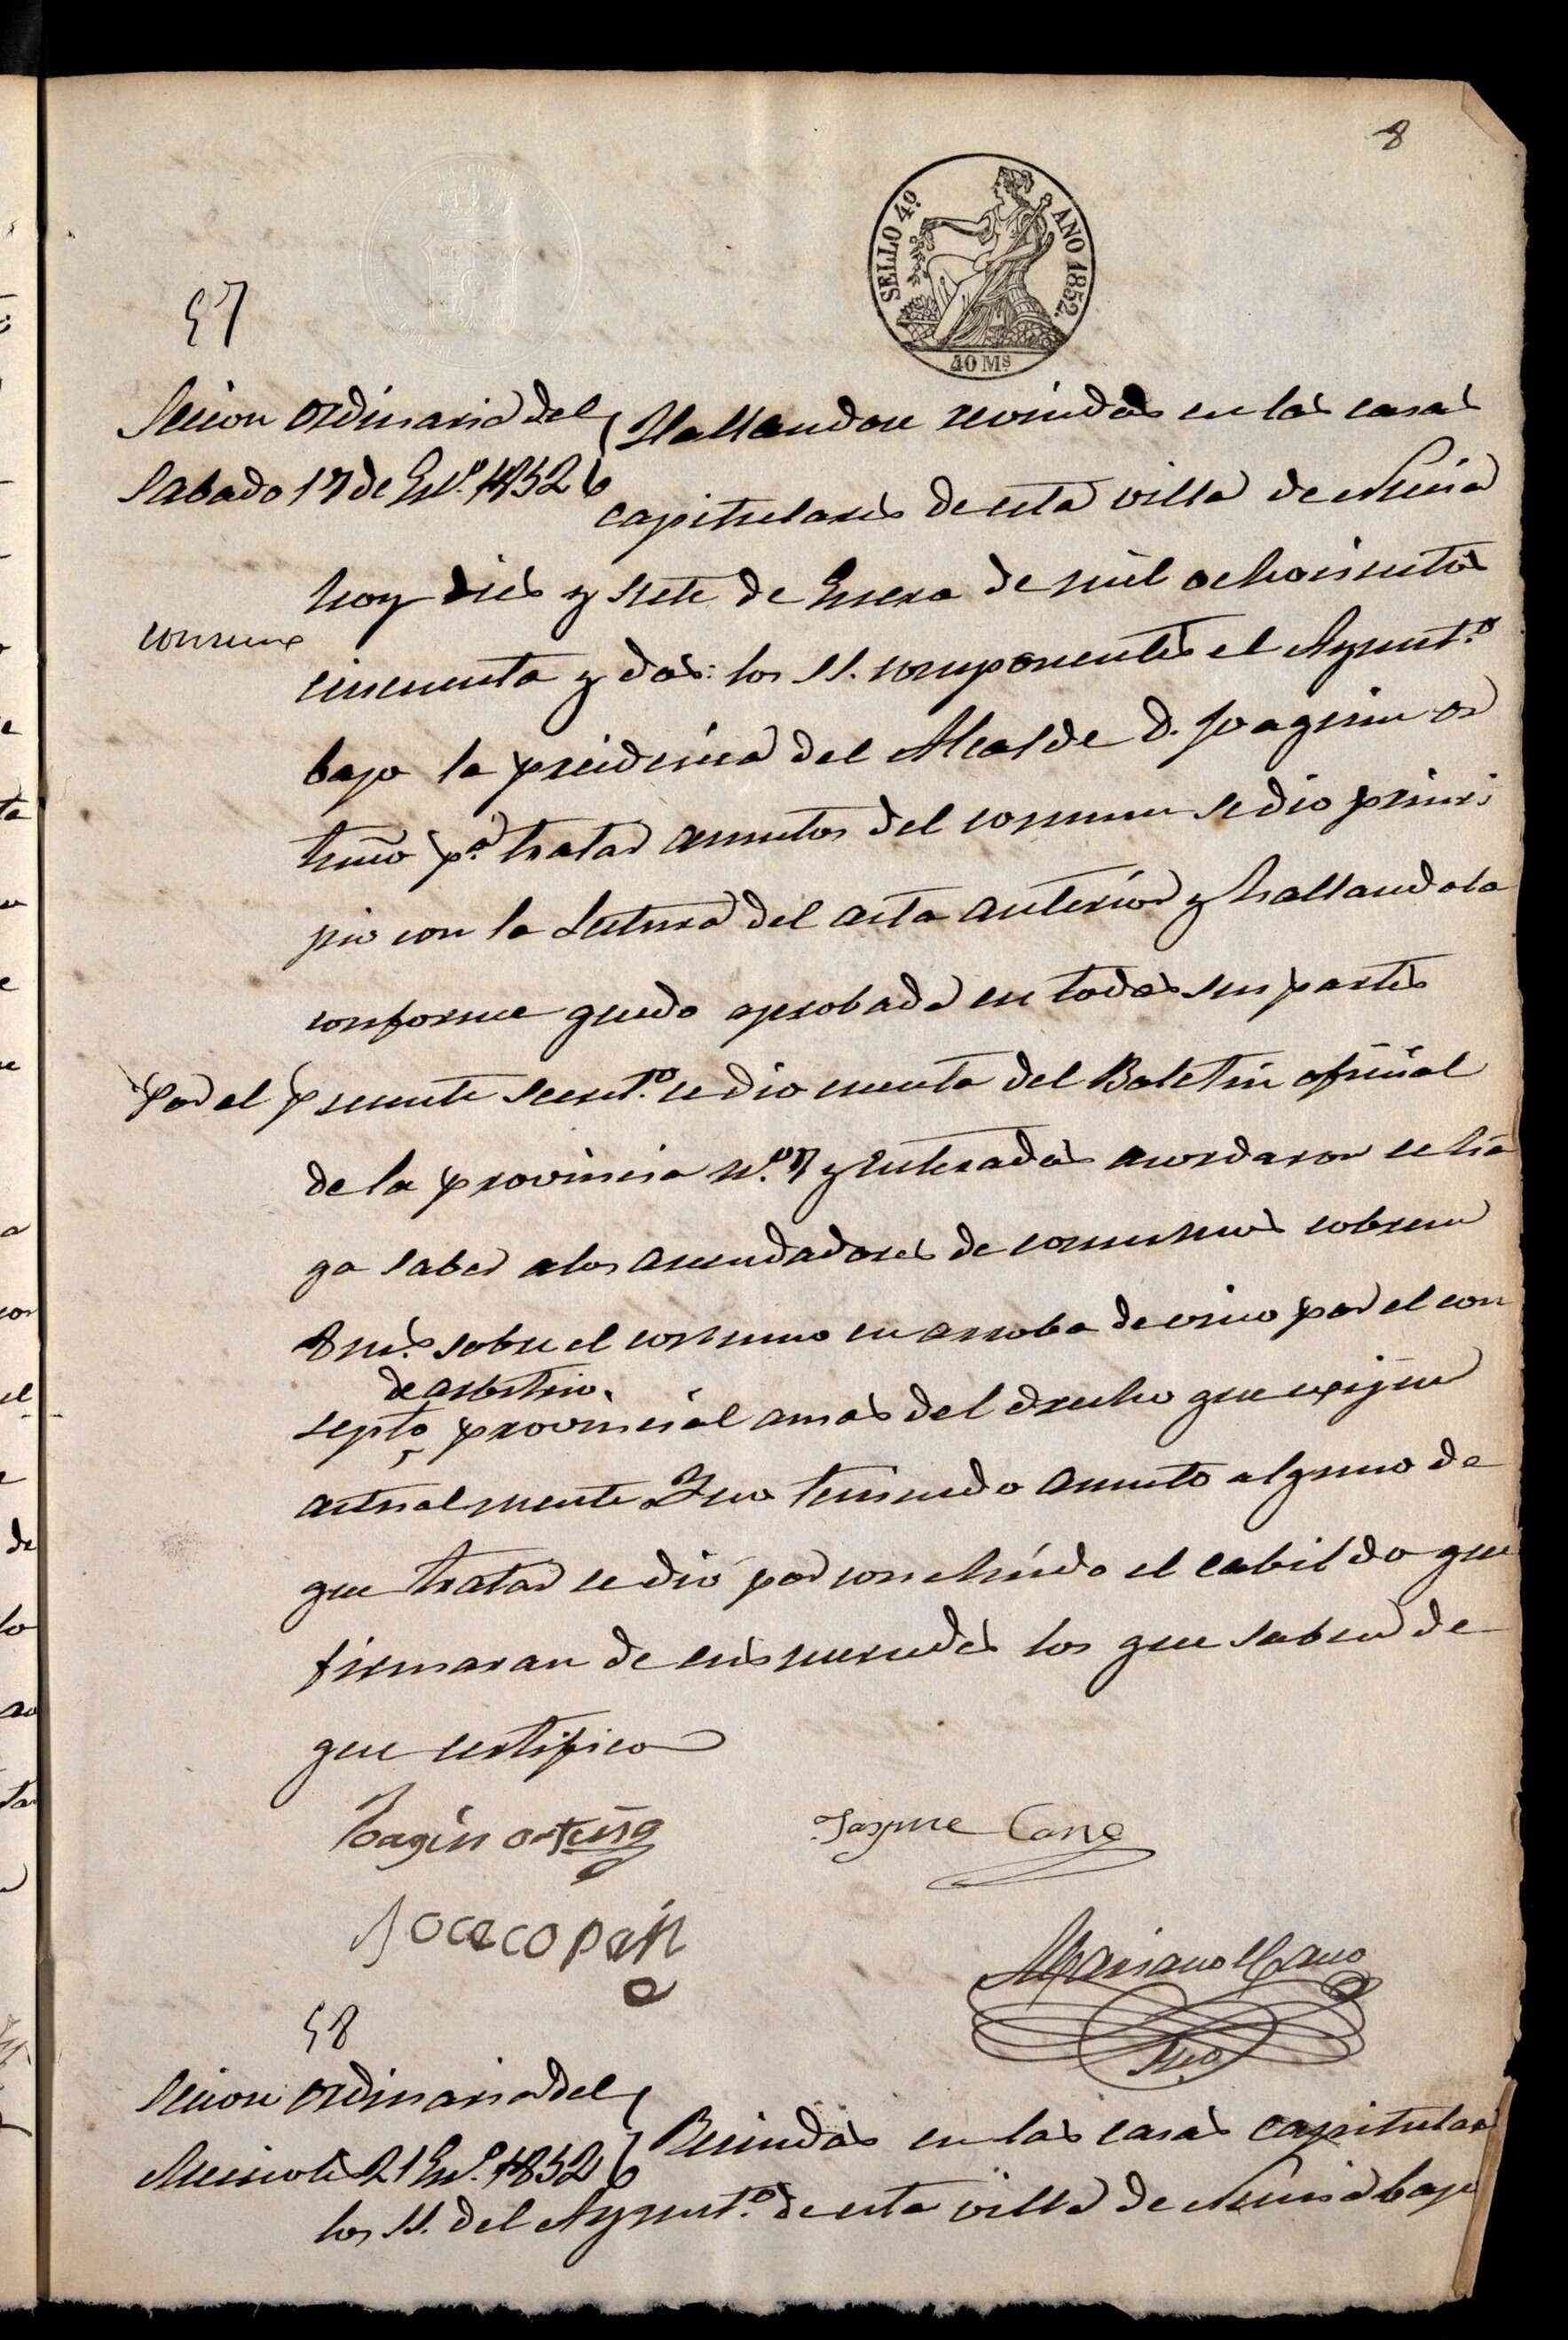 8
SELLO 4º AÑO 1852.
40 Ms
57
Secion ordinaria del
Sabado 17 de En.º 1852
Hallandose reonidos en las casas
capitulares de esta villa de Nucia
hoy dies y siete de Enero de mil ochocientos
consumo
cincuenta y dos: los SS. componentes el Ayunt.º
bajo la precidencia del Alcalde D. Joaquin or
tuño p.ª tratar asuntos del comun se dio princi
pio con la Lectura del acta anterior y hallandola
conforme quedo aprobada en todas sus partes
Por el presente secret.º se dio cuenta del Boletin oficial
de la provincia n.º 7 y Enterados acordaron se há
ga saber a los arrendadores de consumos cobren
8 m.s sobre el consumo en arroba de vino por el con
de arbitrio
septo provincial amas del drecho que exijen
actualmente Y no teniendo asunto alguno de
que tratar se dió por concluido el cabildo que
firmaran de sus mercedes los que saben de
que certifico
Joaqin ortuño
Jayme Cano
Mariano Cano
Srio
58
Secion ordinaria del
Miercoles 21 En.º 1852
Reunidos en las casas capitulares
los SS. del Ayunt.º de esta villa de Nucia bajo